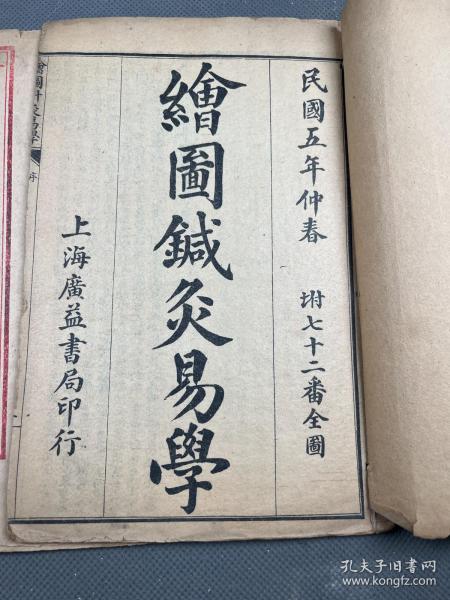 民國五年仲春 坿七十二番全圖
繪圖鍼灸易學
上海廣益書局印行
繪圖針灸易學
序
孔夫子旧书网
www.kongfz.com